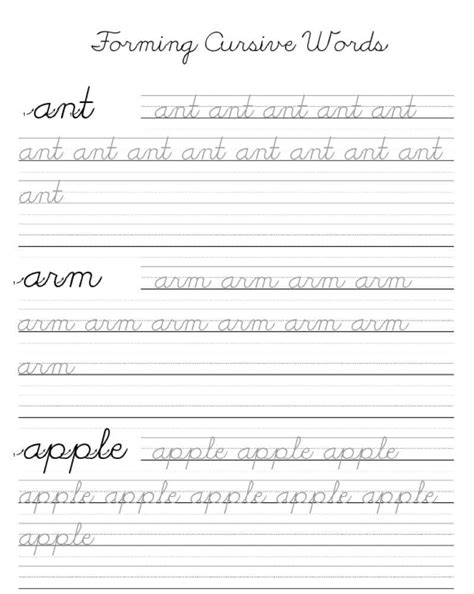 Forming Cursive Words
ant ant ant ant ant ant
ant ant ant ant ant ant ant ant
ant
arm arm arm arm arm
arm arm arm arm arm arm
arm
apple apple apple apple
apple apple apple apple apple
apple